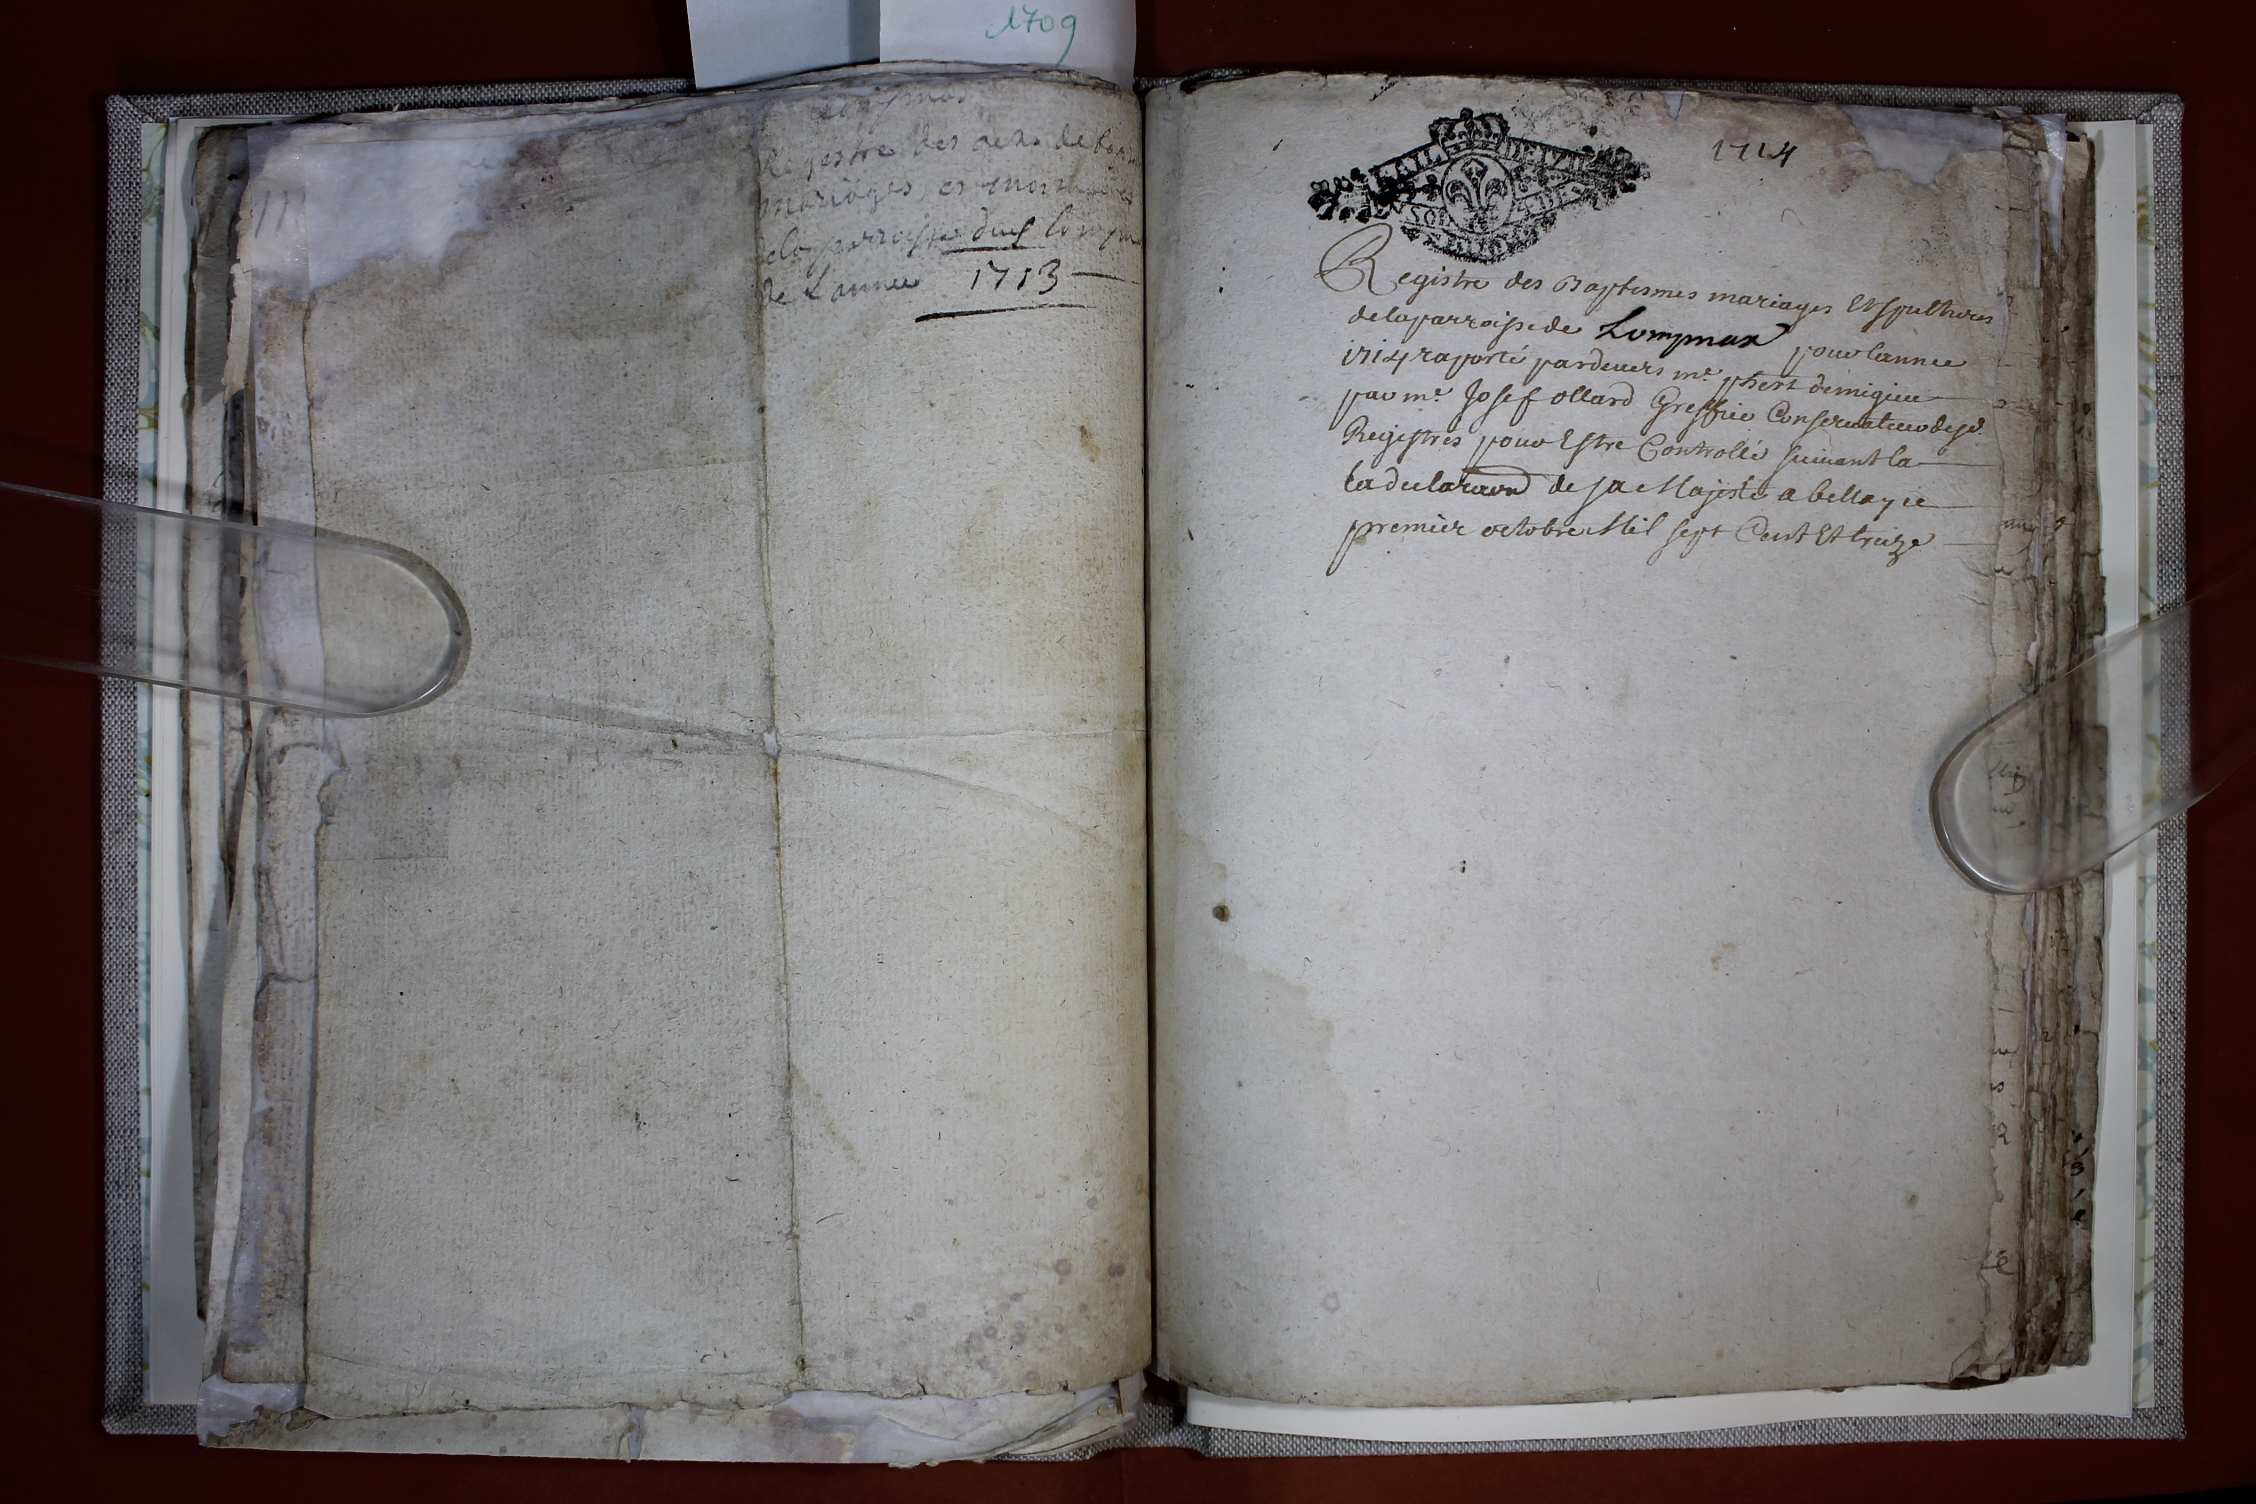 1709
Registre des actes de bap
mariages, et mortuaires
de la parroisse du Lomp
de Lannee 1713
1714
Registre des Baptesmes mariages Et Spultures
de la parroisse de Lompnax pour lannee
1714 raporté pardevers me. phert demigieu
par me. Josef ollard Greffie Conservateur desd.
Registres pour Estre Controllé suivant la
la declaraon de sa Majesté a bellay ce
premier octobre Mil sept Cent Et treize